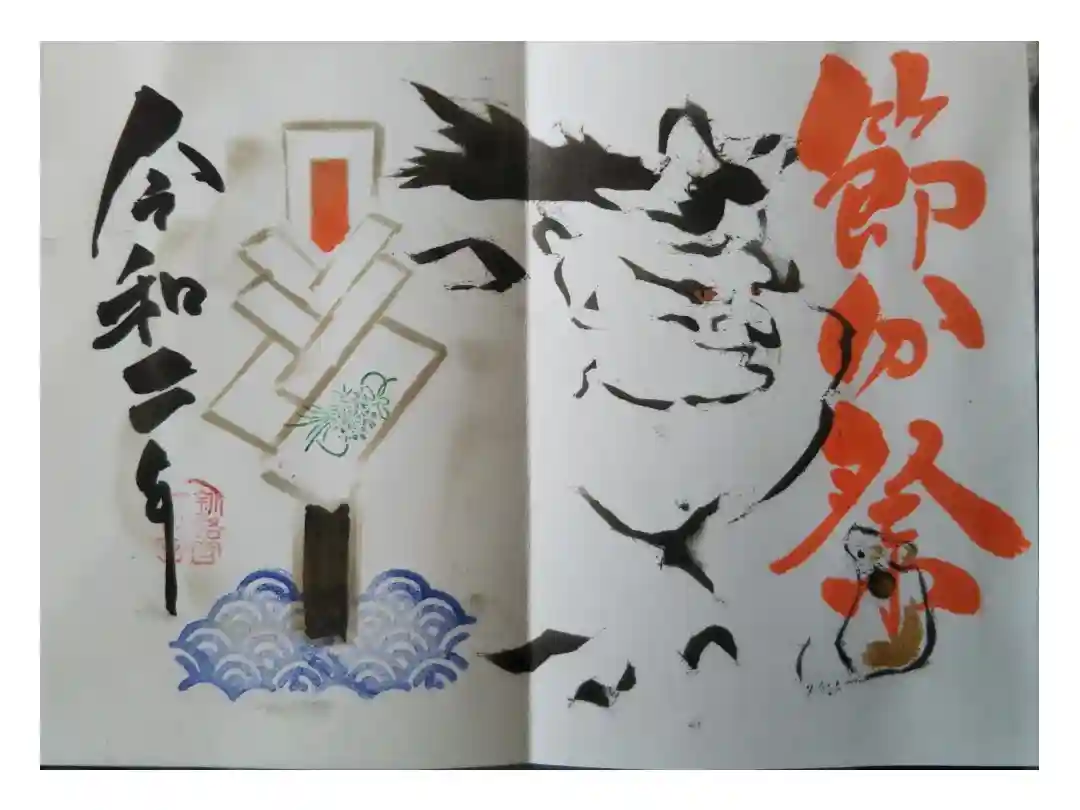 節分祭
令和二年